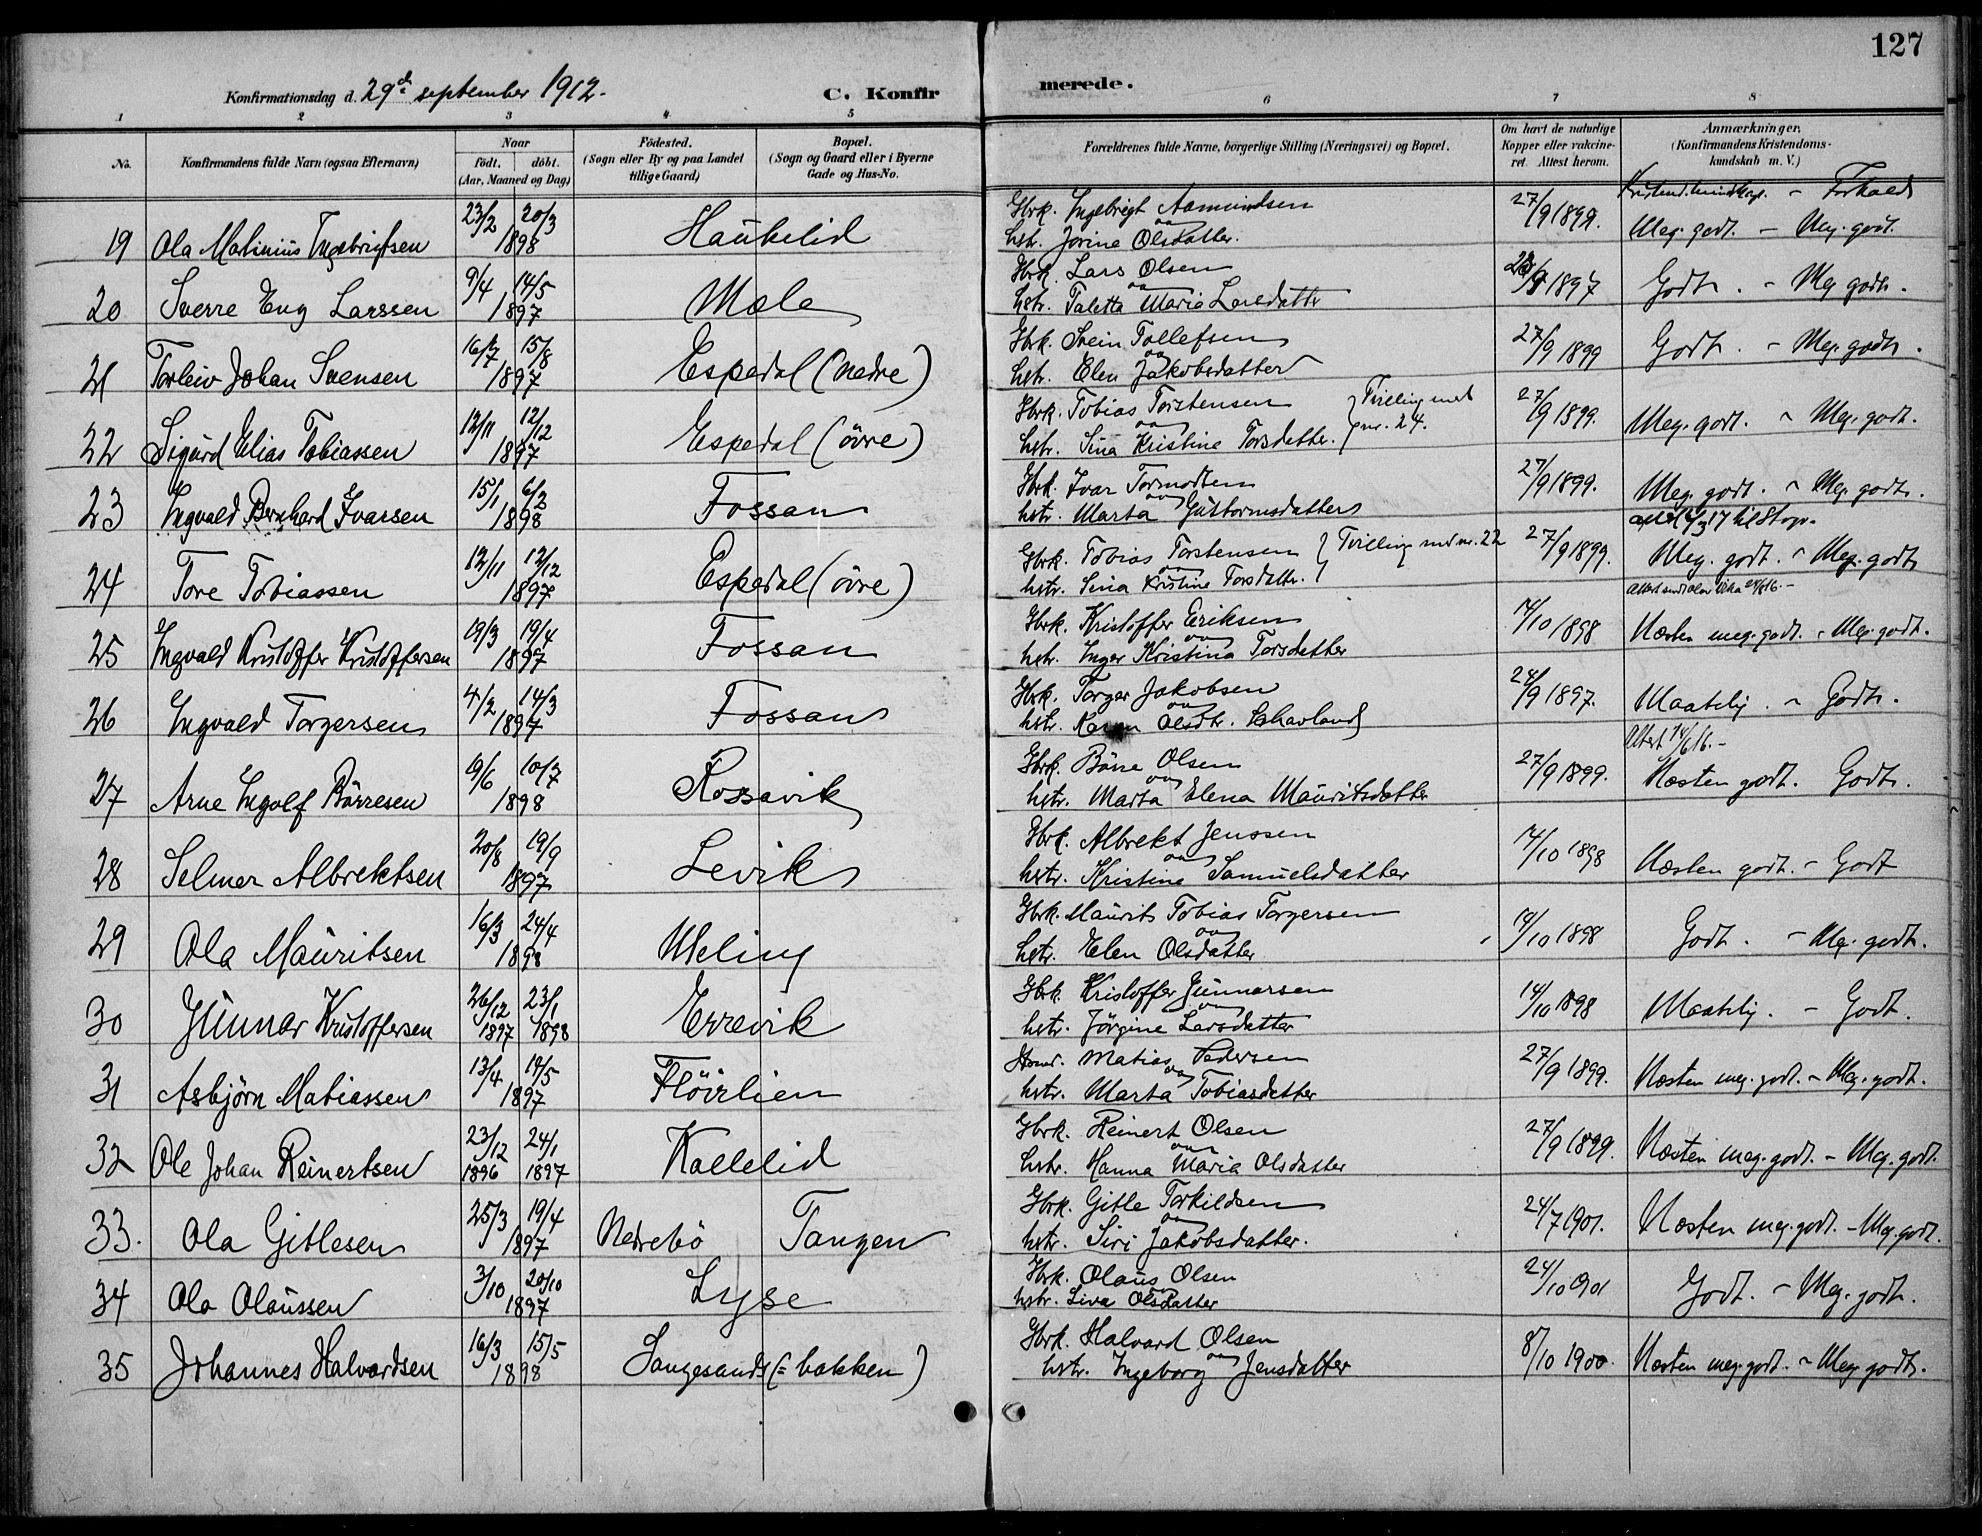 127
Konfirmationsdag d. 29de september 1912.
C. Konfirmerede.
1 2 3 4 5 6 7 8
No.
Konfirmandens fulde Navn (ogsaa Efternavn)
Naar
født. døbt.
(Aar, Maaned og Dag)
Fødested.
(Sogn eller By og paa Landet
tillige Gaard)
Bopæl.
(Sogn og Gaard eller i Byerne
Gade og Hus-No.
Forældrenes fulde Navne, borgerlige Stilling (Næringsvei) og Bopæl.
Om havt de naturlige
Kopper eller vaccineret. Attest herom.
Anmærkninger.
(Konfirmandens Kristendomskundskab m. V.)
Kristend.kundskap. - Forhold
19 Ola Matinius Ingebrigtsen 23/2 20/3 1898 Haukelid
Gbrk. Ingebrigt Aamundsen
og
hstr. Jorine Olsdatter.
27/9 1899. Meg. godt. - Meg. godt.
20 Sverre Eng Larssen 9/4 14/5 1897 Mæle
Gbrk. Lars Olsen
og
hstr. Taletta Maria Larsdatter
1897 Godt. - Meg. godt.
21 Torleiv Johan Svensen 16/7 15/8 1897 Espedal (nedre)
Gbrk. Svein Tollefsen
og
hstr. Elen Jakobsdatter
27/9 1899 Godt. - Meg. godt.
22 Sigurd Elias Tobiassen 12/11 12/12 1897 Espedal (övre)
Gbrk. Tobias Torstensen } Tvilling med
og
hstr. Sina Kristine Torsdatter. } nr. 24.
27/9 1899. Meg. godt. - Meg. godt.
23 Ingvald Bernhard Ivarsen 15/1 6/2 1898 Fossan
Gbrk. Ivar Tormodsen
og
hstr. Marta Guttormsdatter
27/9 1899. Meg. godt. - Meg. godt.
24 Tore Tobiassen 12/11 12/12 1897 Espedal (övre)
Gbrk. Tobias Torstensen } Tvilling med nr. 22
og
hstr. Sina Kristine Torsdatter. }
27/9 1899. Meg. godt. - Meg. godt
25 Ingvald Kristoffer Kristoffersen 19/3 19/4 1897 Fossan
Gbrk. Kristoffer Eriksen
og
hstr. Inger Kristina Torsdatter
14/10 1898 Næsten meg. godt. - Meg. godt.
26 Ingvald Torgersen 4/2 14/3 1897 Fossan
Gbrk. Torger Jakobsen
og
hstr. Karen Olsdtr.
24/9 1897. Maatelig. - Godt.
Attest 14/6 16. -
27 Arne Ingolf Börresen 9/6 10/7 1898 Rossavik
Gbrk. Börre Olsen
og
hstr. Marta Elena Mauritsdatter
27/9 1899. Næsten godt. Godt.
28 Selmer Albrektsen 20/8 19/9 1897 Levik
Gbrk. Albrekt Jenssen
og
hstr. Kristine Samuelsdatter
14/10 1898 Næsten godt. - Godt
29 Ola Mauritsen 16/3 24/4 1898 Meling
Gbrk. Maurits Tobias Torgersen
og
hstr. Elen Olsdatter
14/10 1898 Godt. - Meg. godt.
30 Gunnar Kristoffersen 26/12 1897 23/1 1898 Errevik
Gbrk. Kristoffer Gunnarsen
og
hstr. Jörgine Larsdatter
14/10 1898 Maatelig. - Godt.
31 Asbjörn Matiassen 13/4 19/5 1897 Flöirlien
Matias Pedersen
og
hstr. Marta Tobiasdatter
27/9 1899. Næsten meg. godt. - Meg. godt.
32 Ole Johan Reinertsen 23/12 1896 24/1 1897 Kallelid
Gbrk. Reinert Olsen
og
hstr. Hanna Maria Olsdatter
27/9 1899. Næsten meg. godt. - Meg. godt.
33. Ola Gitlesen 25/3 19/4 1897 Nedrebö Tangen
Gbrk. Gitle Torkildsen
og
hstr. Siri Jakobsdatter.
24/7 1901. Næsten meg. godt. - Meg. godt.
34 Ola Olaussen 3/10 20/10 1897 Lyse
Gbrk. Olaus Olsen
og
hstr. Siva Olsdatter
24/10 901 Godt. - Meg. godt.
35 Johannes Halvardsen 16/3 15/5 1898 Songesand (= bakken)
Gbrk. Halvard Olsen
og
hstr. Ingeborg Jensdatter
8/10 1900. Næsten meg. godt. - Meg. godt.